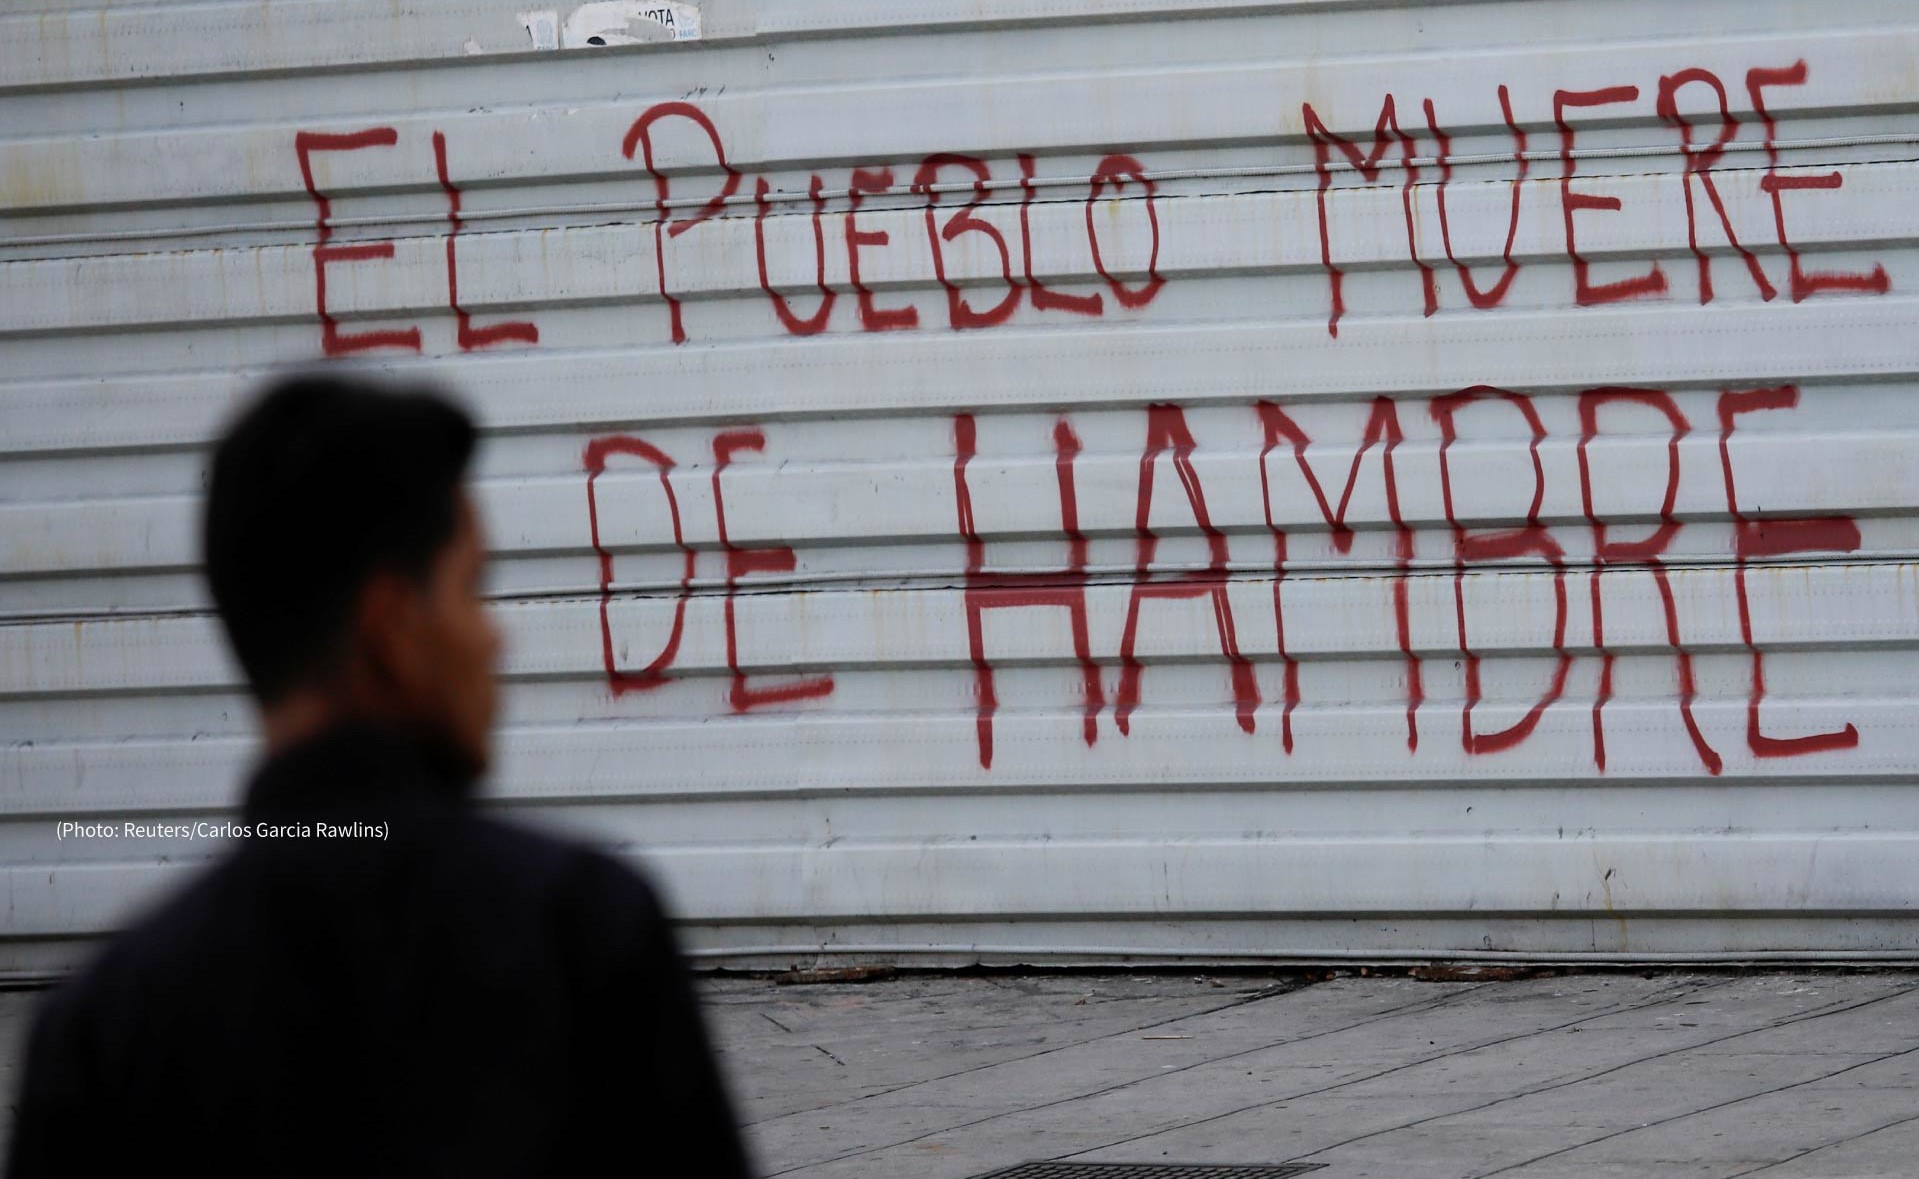 VOTA
FARC
EL PUEBLO MUERE
DE HAMBRE
(Photo: Reuters/Carlos Garcia Rawlins)